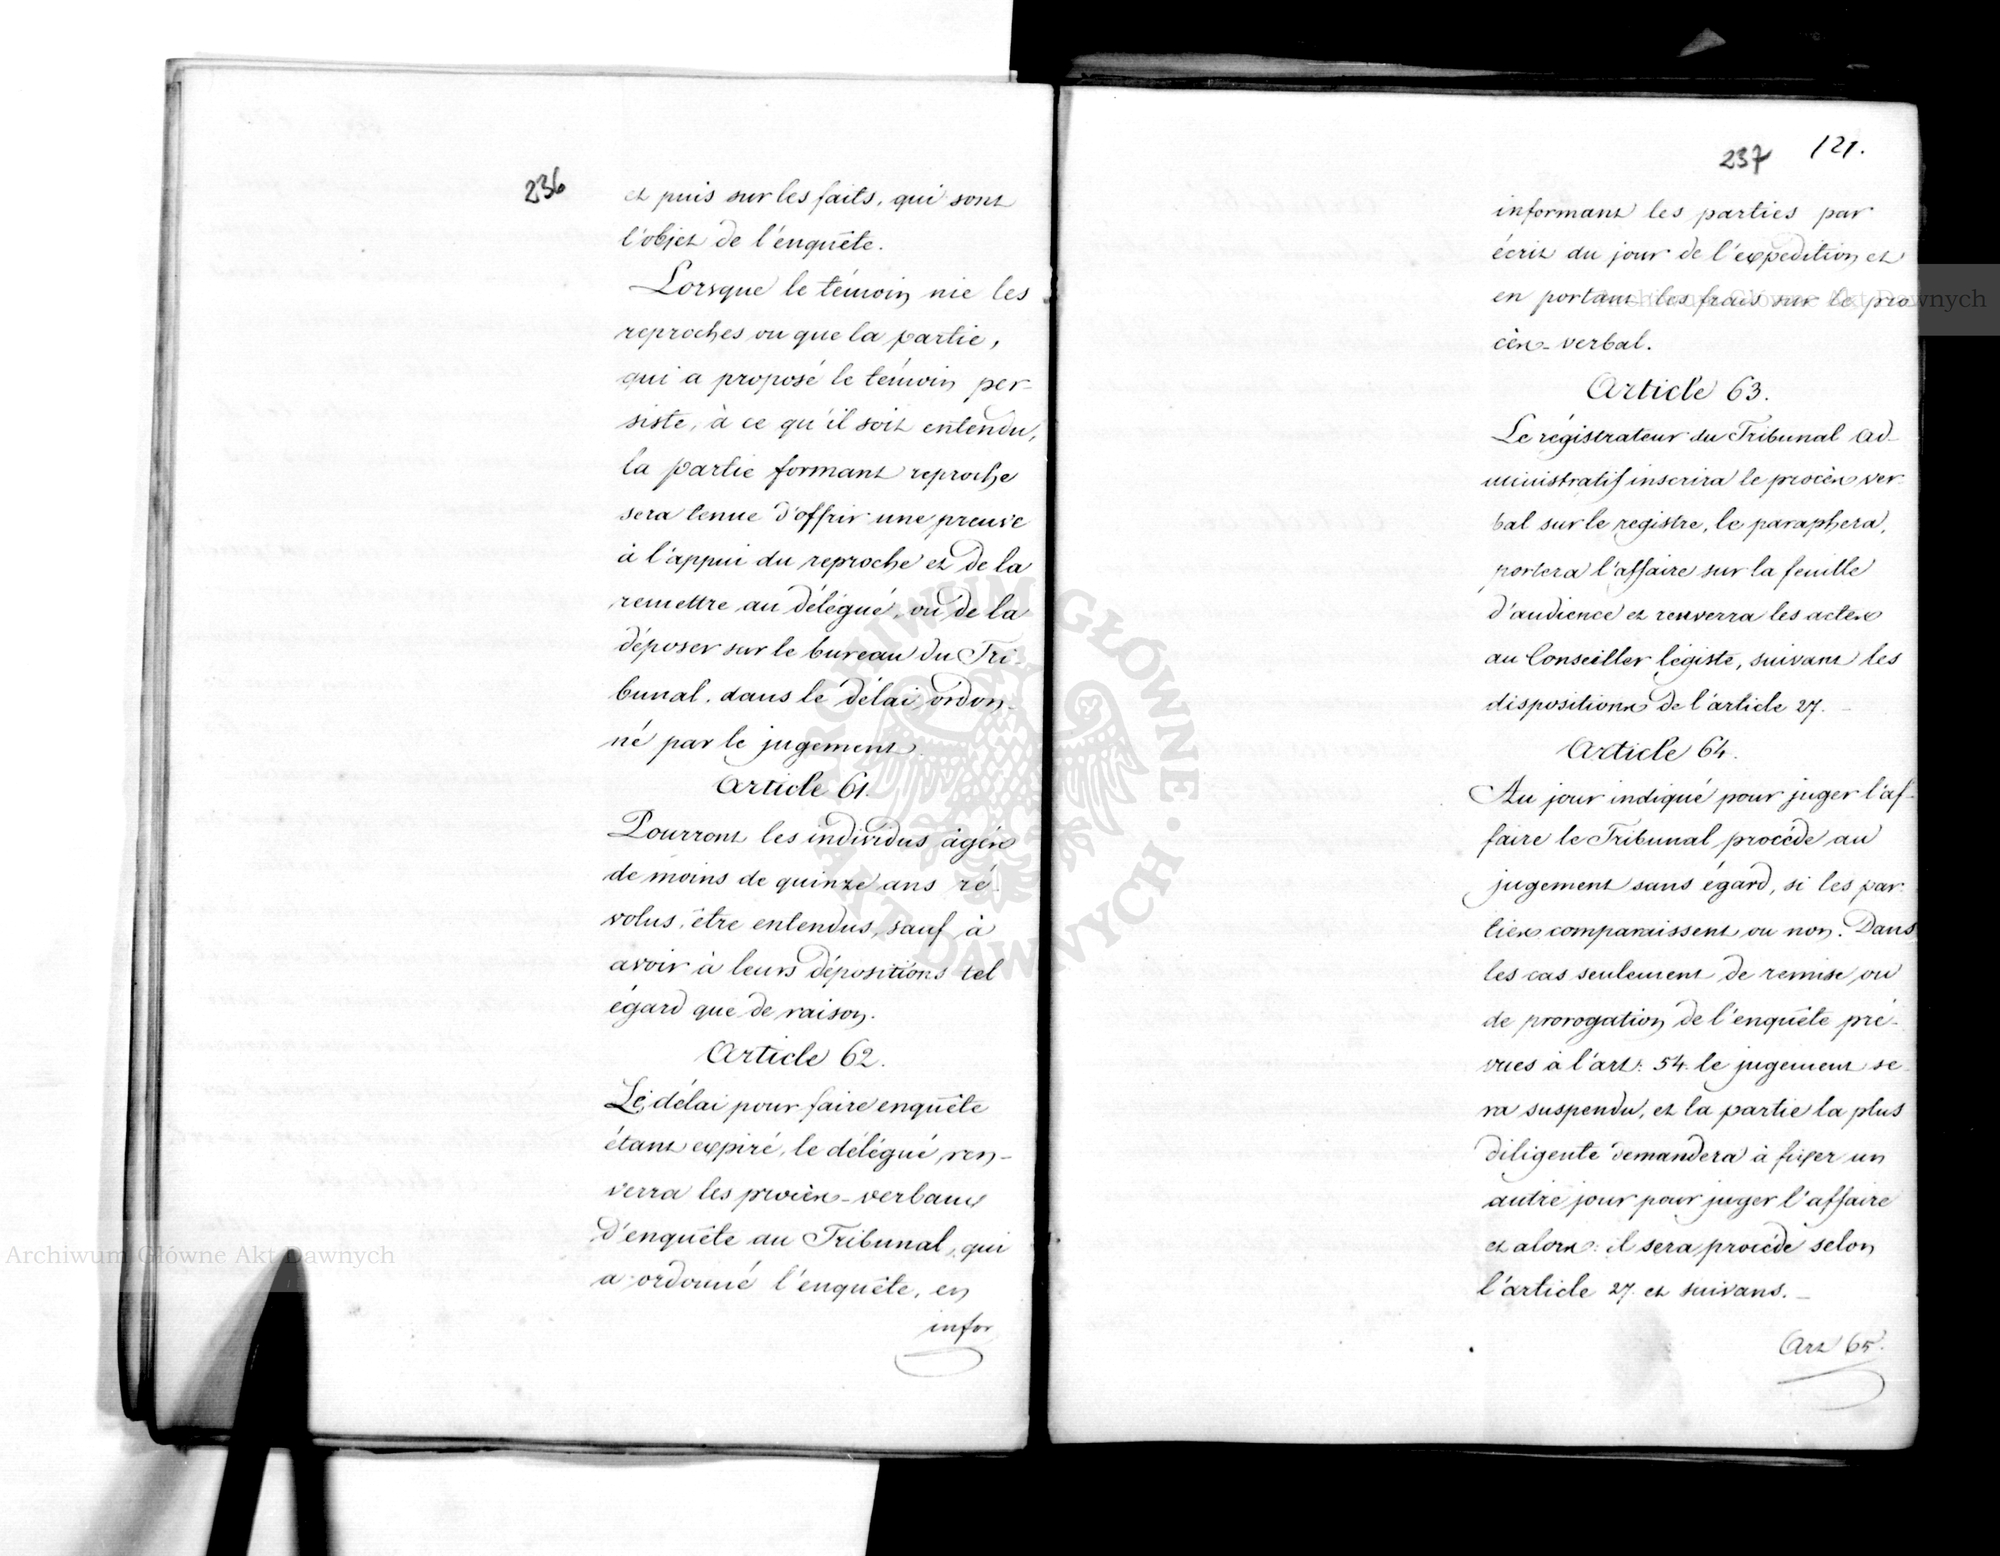 236
et puis sur les faits, qui sont
l'objet de l'enquête.
Lorsque le témoin nie les
reproches ou que la partie,
qui a proposé le témoin per-
siste, à ce qu'il soit entendu,
la partie formant reproche
sera tenue d'offrir une preuve
à l'appui du reproche et de la
remettre au délégué, ou de la
déposer sur le bureau du Tri-
bunal, dans le délai, ordon-
né par le jugement.
Article 61.
Pourront les individus âgés
de moins de quinze ans ré-
volus, être entendus, sauf à
avoir à leurs dépositions tel
égard que de raison.
Article 62.
Le délai pour faire enquête
étant expiré, le délégué ren-
verra les procès-verbaux
d'enquête au Tribunal, qui
a ordonné l'enquête, en
infor
237 121.
informant les parties par
écrit du jour de l'expédition et
en portant les frais sur le pro
cès-verbal.
Article 63.
Le régistrateur du Tribunal ad-
ministratif inscrira le procès ver-
bal sur le registre, le paraphera,
portera l'affaire sur la feuille
d'audience et renverra les actes
au Conseiller légiste, suivant les
dispositions de l'article 27. -
Article 64.
Au jour indiqué pour juger l'af-
faire le Tribunal procéde au
jugement sans égard, si les par-
ties comparaissent ou non. Dans
les cas seulement de remise ou
de prorogation de l'enquête pré-
vues à l'art: 54. le jugement se-
ra suspendu, et la partie la plus
diligente demandera à fixer un
autre jour pour juger l'affaire
et alors: il sera procédé selon
l'article 27. et suivans. -
Art 65.
Archiwum Główne Akt Dawnych
Archiwum Główne Akt Dawnych
ARCHIWUM GŁÓWNE · AKT DAWNYCH ·